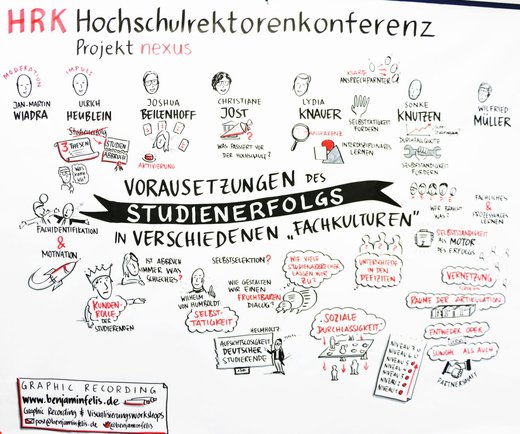 HRK Hochschulrektorenkonferenz
Projekt nexus
MODERATION
JAN-MARTIN
WIADRA
IMPULS
ULRICH
HEUBLEIN
3
THESEN
STUDIEN
ABBRUCH
JOSHUA
BEILENHOFF
AKTIVIERUNG
CHRISTIANE
JOST
WAS PASSIERT VOR
DER HOCHSCHULE?
LYDIA
KNAUER
TRANSPARENZ
ANSPRECHPARTNER
SELBSTTÄTIGKEIT
FÖRDERN
INTERDISZIPLINÄRES
LERNEN
SÖNKE
KNUTZEN
SELBSTSTÄNDIGKEIT
FÖRDERN
WER BRAUCHT
WAS?
WILFRIED
MÜLLER
FACHLICHES
&
PROZESSUALES
LERNEN
SELBSTSTÄNDIGKEIT
ALS MOTOR
DES ERFOLGS
VORAUSETZUNGEN DES
STUDIENERFOLGS
IN VERSCHIEDENEN „FACHKULTUREN"
FACHIDENTIFIKATION
&
MOTIVATION
KUNDEN-
ROLLE
DER
STUDIERENDEN
IST ABBRUCH
IMMER WAS
SCHLECHTES?
WILHELM
VON HUMBOLDT
SELBST-
TÄTIGKEIT
SELBSTSELEKTION?
WIE GESTALTEN
WIR EINEN
FRUCHTBAREN
DIALOG?
WIE VIELE
STUDIENABBRECHER
LASSEN WIR
ZU?
HELMHOLTZ
AUFSICHTSLOSIGKEIT
DEUTSCHER
STUDIERENDE
UNTERSCHIEDE
IN DEN
DEFIZITEN
SOZIALE
DURCHLÄSSIGKEIT
NIVEAU 7
NIVEAU 6
NIVEAU 5
NIVEAU 4
NIVEAU 3
NIVEAU 2
NIVEAU 1
VERNETZUNG
RÄUME DER ARTIKULATION
ENTWEDER ODER
SOWOHL ALS AUCH
PARTNERSCHAFT
GRAPHIC RECORDING
www.benjaminfelis.de
Graphic Recording & Visualisierungsworkshops
post@benjaminfelis.de @benjaminfelis